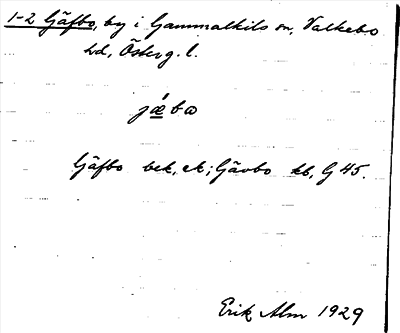 1-2 Gäfbo, by i Gammalkils sn, Valkebo
hd, Österg. l.
jǽba
Gäfbo bek, ek; Gävbo kb, G 45.
Erik Alm 1929